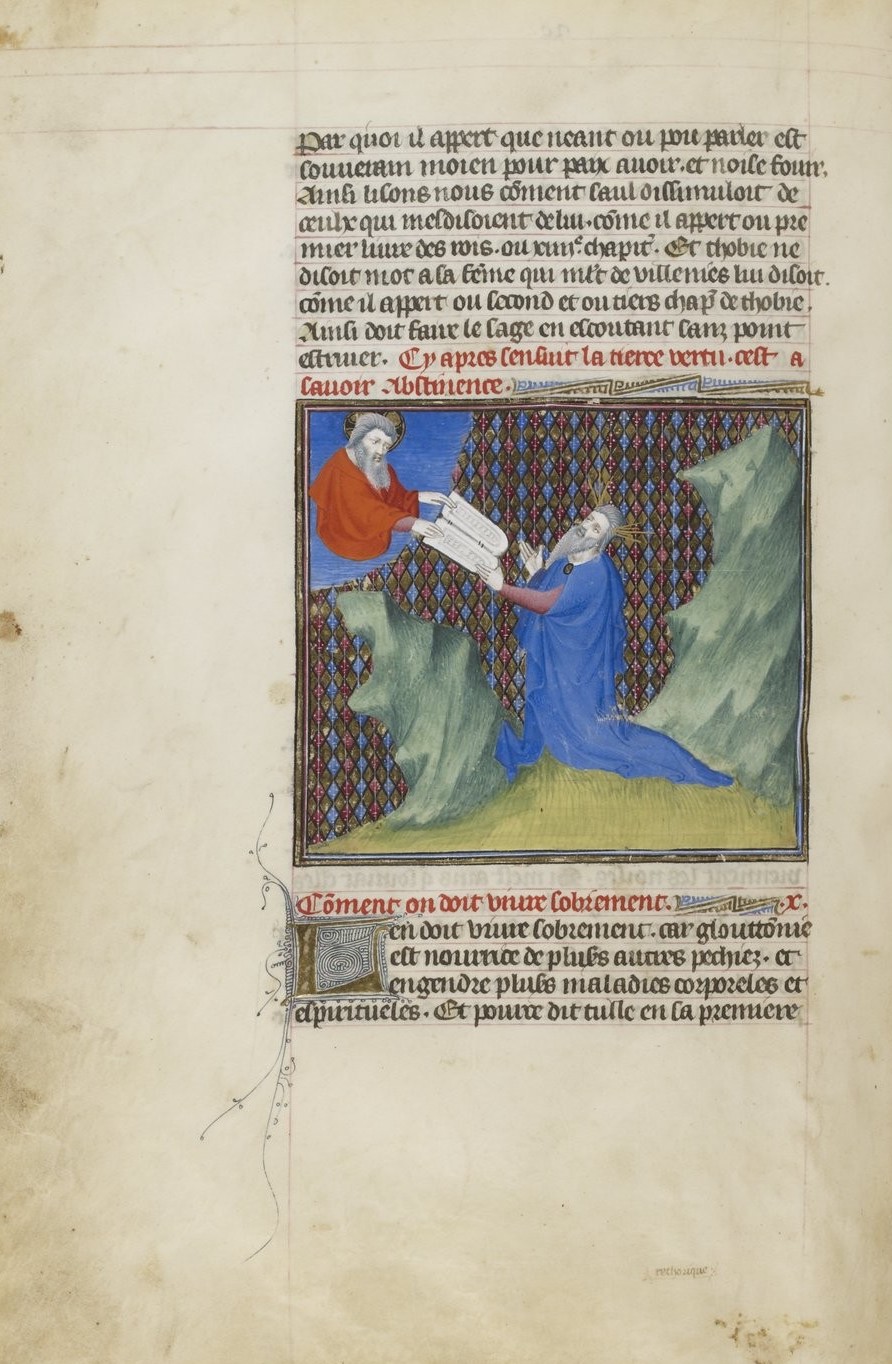 Par quoi il appert que neant ou pou parler est
souuerain moien pour paix auoir. et noise fouir.
Ainsi lisons nous cōment saul dissimuloit de
ceulx qui mesdisoient de lui. cōme il appert ou pre
mier liure des rois. ou xiiiiᵉ chapitʳ. Et thobie ne
disoit mot a sa fēme qui mlt de villenies lui disoit.
cōme il appert ou second et ou tiers chap̄ de thobie.
Ainsi doit faire le sage en escoutant sanz point
estriuer. Cy apres sensuit la tierce vertu. cest a
sauoir Abstinence.
Cōment on doit viure sobrement. .x.
Len doit viure sobrement. car glouttōnie
est nourrice de pluss autres pechiez. et
engendre pluss maladies corporeles et
esp̄irituēles. Et pource dit tulle en sa premiere
rethorique